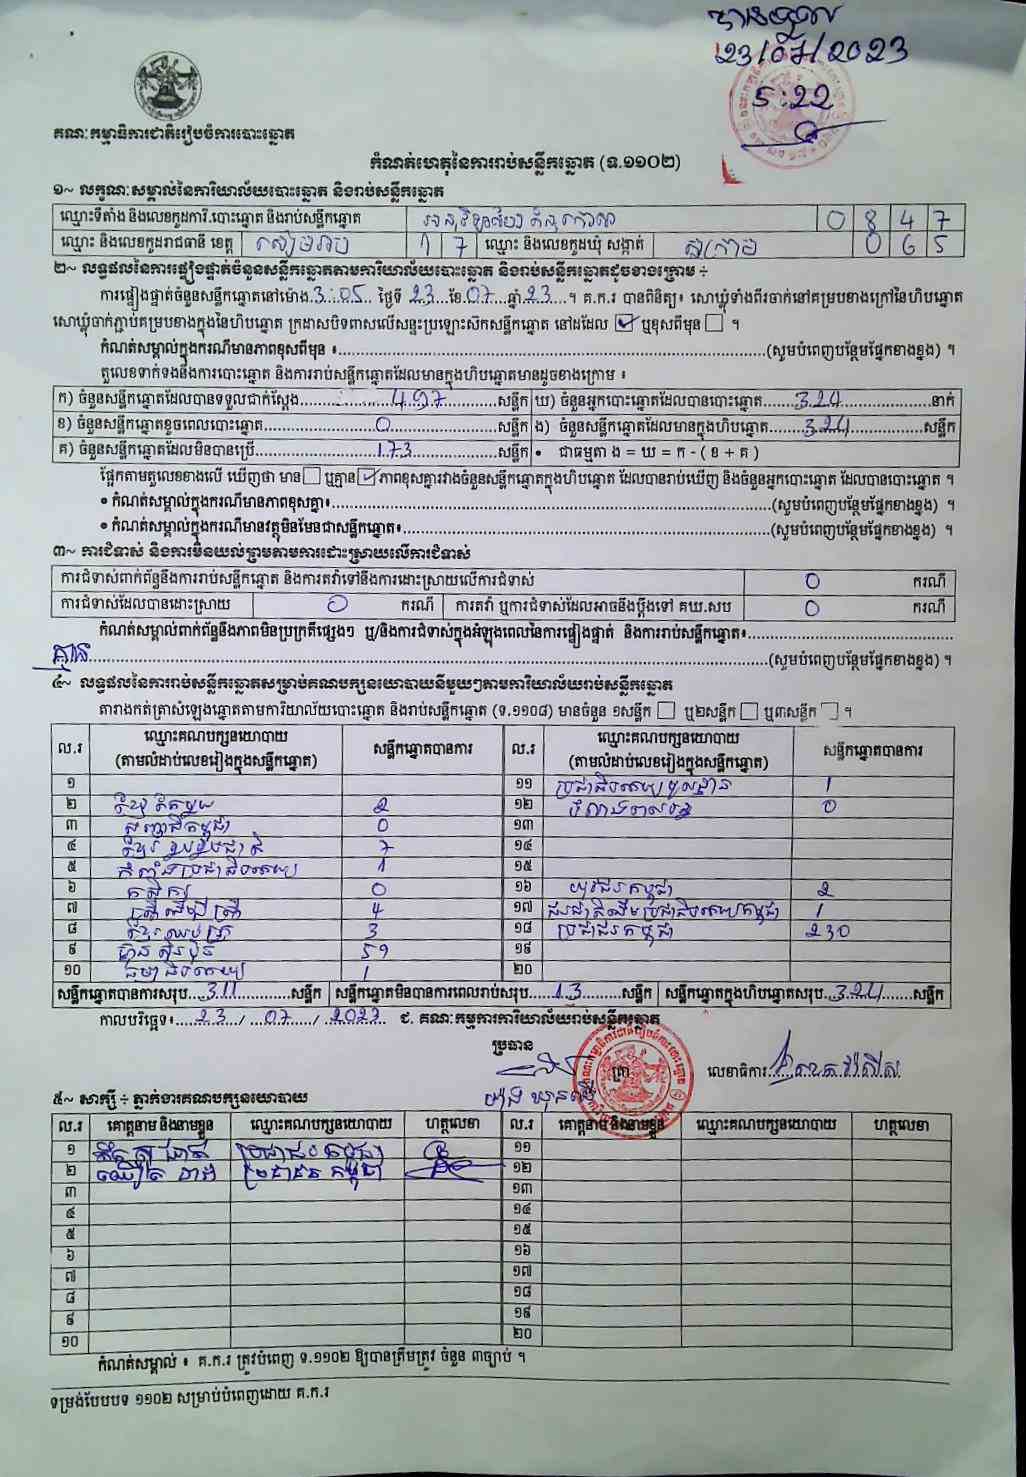 បានទទួល
23/07/2023
5:22
គណៈកម្មាធិការជាតិរៀបចំការបោះឆ្នោត
កំណត់ហេតុនៃការរាប់សន្លឹកឆ្នោត (ទ.១១០២)
១~ លក្ខណៈសម្គាល់នៃការិយាល័យបោះឆ្នោត និងរាប់សន្លឹកឆ្នោត
ឈ្មោះទីតាំង និងលេខកូដការិ.បោះឆ្នោត និងរាប់សន្លឹកឆ្នោត 0 8 4 7
ឈ្មោះ និងលេខកូដរាជធានី ខេត្ត សៀមរាប 1 7 ឈ្មោះ និងលេខកូដឃុំ សង្កាត់ ស្លក្រាម 0 6 5
២~ លទ្ធផលនៃការផ្ទៀងផ្ទាត់ចំនួនសន្លឹកឆ្នោតតាមការិយាល័យបោះឆ្នោត និងរាប់សន្លឹកឆ្នោតដូចខាងក្រោម ÷
ការផ្ទៀងផ្ទាត់ចំនួនសន្លឹកឆ្នោតនៅម៉ោង 3:05 ថ្ងៃទី 23 ខែ 07 ឆ្នាំ 23 ។ គ.ក.រ បានពិនិត្យ៖ សោឃ្លុំទាំងពីរចាក់នៅគម្របខាងក្រៅនៃហិបឆ្នោត
សោឃ្លុំចាក់ភ្ជាប់គម្របខាងក្នុងនៃហិបឆ្នោត ក្រដាសបិទពាសលើសន្ទះប្រឡោះសិកសន្លឹកឆ្នោត នៅដដែល ☑ ឬខុសពីមុន ☐ ។
កំណត់សម្គាល់ក្នុងករណីមានភាពខុសពីមុន ៖ (សូមបំពេញបន្ថែមផ្នែកខាងខ្នង) ។
តួលេខទាក់ទងនឹងការបោះឆ្នោត និងការរាប់សន្លឹកឆ្នោតដែលមានក្នុងហិបឆ្នោតមានដូចខាងក្រោម ៖
ក) ចំនួនសន្លឹកឆ្នោតដែលបានទទួលជាក់ស្តែង 497 សន្លឹក ឃ) ចំនួនអ្នកបោះឆ្នោតដែលបានបោះឆ្នោត 324 នាក់
ខ) ចំនួនសន្លឹកឆ្នោតខូចពេលបោះឆ្នោត 0 សន្លឹក ង) ចំនួនសន្លឹកឆ្នោតដែលមានក្នុងហិបឆ្នោត 324 សន្លឹក
គ) ចំនួនសន្លឹកឆ្នោតដែលមិនបានប្រើ 173 សន្លឹក • ជាធម្មតា ង = ឃ = ក - ( ខ + គ )
ផ្អែកតាមតួលេខខាងលើ ឃើញថា មាន ☐ ឬគ្មាន ☑ ភាពខុសគ្នារវាងចំនួនសន្លឹកឆ្នោតក្នុងហិបឆ្នោត ដែលបានរាប់ឃើញ និងចំនួនអ្នកបោះឆ្នោត ដែលបានបោះឆ្នោត ។
• កំណត់សម្គាល់ក្នុងករណីមានភាពខុសគ្នា៖ (សូមបំពេញបន្ថែមផ្នែកខាងខ្នង) ។
• កំណត់សម្គាល់ក្នុងករណីមានវត្ថុមិនមែនជាសន្លឹកឆ្នោត៖ (សូមបំពេញបន្ថែមផ្នែកខាងខ្នង) ។
៣~ ការជំទាស់ និងការមិនយល់ព្រមតាមការដោះស្រាយលើការជំទាស់
ការជំទាស់ពាក់ព័ន្ធនឹងការរាប់សន្លឹកឆ្នោត និងការតវ៉ាទៅនឹងការដោះស្រាយលើការជំទាស់ 0 ករណី
ការជំទាស់ដែលបានដោះស្រាយ 0 ករណី ការតវ៉ា ឬការជំទាស់ដែលអាចនឹងប្តឹងទៅ គឃ.សប 0 ករណី
កំណត់សម្គាល់ពាក់ព័ន្ធនឹងភាពមិនប្រក្រតីផ្សេងៗ ឬ/និងការជំទាស់ក្នុងអំឡុងពេលនៃការផ្ទៀងផ្ទាត់ និងការរាប់សន្លឹកឆ្នោត៖
គ្មាន (សូមបំពេញបន្ថែមផ្នែកខាងខ្នង) ។
៤~ លទ្ធផលនៃការរាប់សន្លឹកឆ្នោតសម្រាប់គណបក្សនយោបាយនីមួយៗតាមការិយាល័យរាប់សន្លឹកឆ្នោត
តារាងកត់ត្រាសំឡេងឆ្នោតតាមការិយាល័យបោះឆ្នោត និងរាប់សន្លឹកឆ្នោត (ទ.១១០៨) មានចំនួន ១សន្លឹក ☐ ឬ២សន្លឹក ☐ ឬ៣សន្លឹក ☐ ។
ល.រ ឈ្មោះគណបក្សនយោបាយ (តាមលំដាប់លេខរៀងក្នុងសន្លឹកឆ្នោត) សន្លឹកឆ្នោតបានការ ល.រ ឈ្មោះគណបក្សនយោបាយ (តាមលំដាប់លេខរៀងក្នុងសន្លឹកឆ្នោត) សន្លឹកឆ្នោតបានការ
១ ១១ ប្រជាធិបតេយ្យមូលដ្ឋាន 1
២ ខ្មែររួបរួម 2 ១២ 0
៣ សញ្ជាតិកម្ពុជា 0 ១៣
៤ 7 ១៤
៥ កំលាំងប្រជាធិបតេយ្យ 1 ១៥
៦ កសិករ 0 ១៦ យុវជនកម្ពុជា 2
៧ ស្ត្រីដើម្បីស្ត្រី 4 ១៧ 1
៨ 3 ១៨ ប្រជាជនកម្ពុជា 230
៩ ហ្វ៊ុនស៊ិនប៉ិច 59 ១៩
១០ ធម្មាធិបតេយ្យ 1 ២០
សន្លឹកឆ្នោតបានការសរុប 311 សន្លឹក សន្លឹកឆ្នោតមិនបានការពេលរាប់សរុប 13 សន្លឹក សន្លឹកឆ្នោតក្នុងហិបឆ្នោតសរុប 324 សន្លឹក
កាលបរិច្ឆេទ៖ 23 / 07 / 2023 ជ. គណៈកម្មការការិយាល័យរាប់សន្លឹកឆ្នោត
ប្រធាន
ត្រា
លេខាធិការ
៥~ សាក្សី ÷ ភ្នាក់ងារគណបក្សនយោបាយ
ល.រ គោត្តនាម និងនាមខ្លួន ឈ្មោះគណបក្សនយោបាយ ហត្ថលេខា ល.រ គោត្តនាម និងនាមខ្លួន ឈ្មោះគណបក្សនយោបាយ ហត្ថលេខា
១ ប្រជាជនកម្ពុជា ១១
២ ប្រជាជនកម្ពុជា ១២
៣ ១៣
៤ ១៤
៥ ១៥
៦ ១៦
៧ ១៧
៨ ១៨
៩ ១៩
១០ ២០
កំណត់សម្គាល់ ៖ គ.ក.រ ត្រូវបំពេញ ទ.១១០២ ឱ្យបានត្រឹមត្រូវ ចំនួន ៣ច្បាប់ ។
ទម្រង់បែបបទ ១១០២ សម្រាប់បំពេញដោយ គ.ក.រ